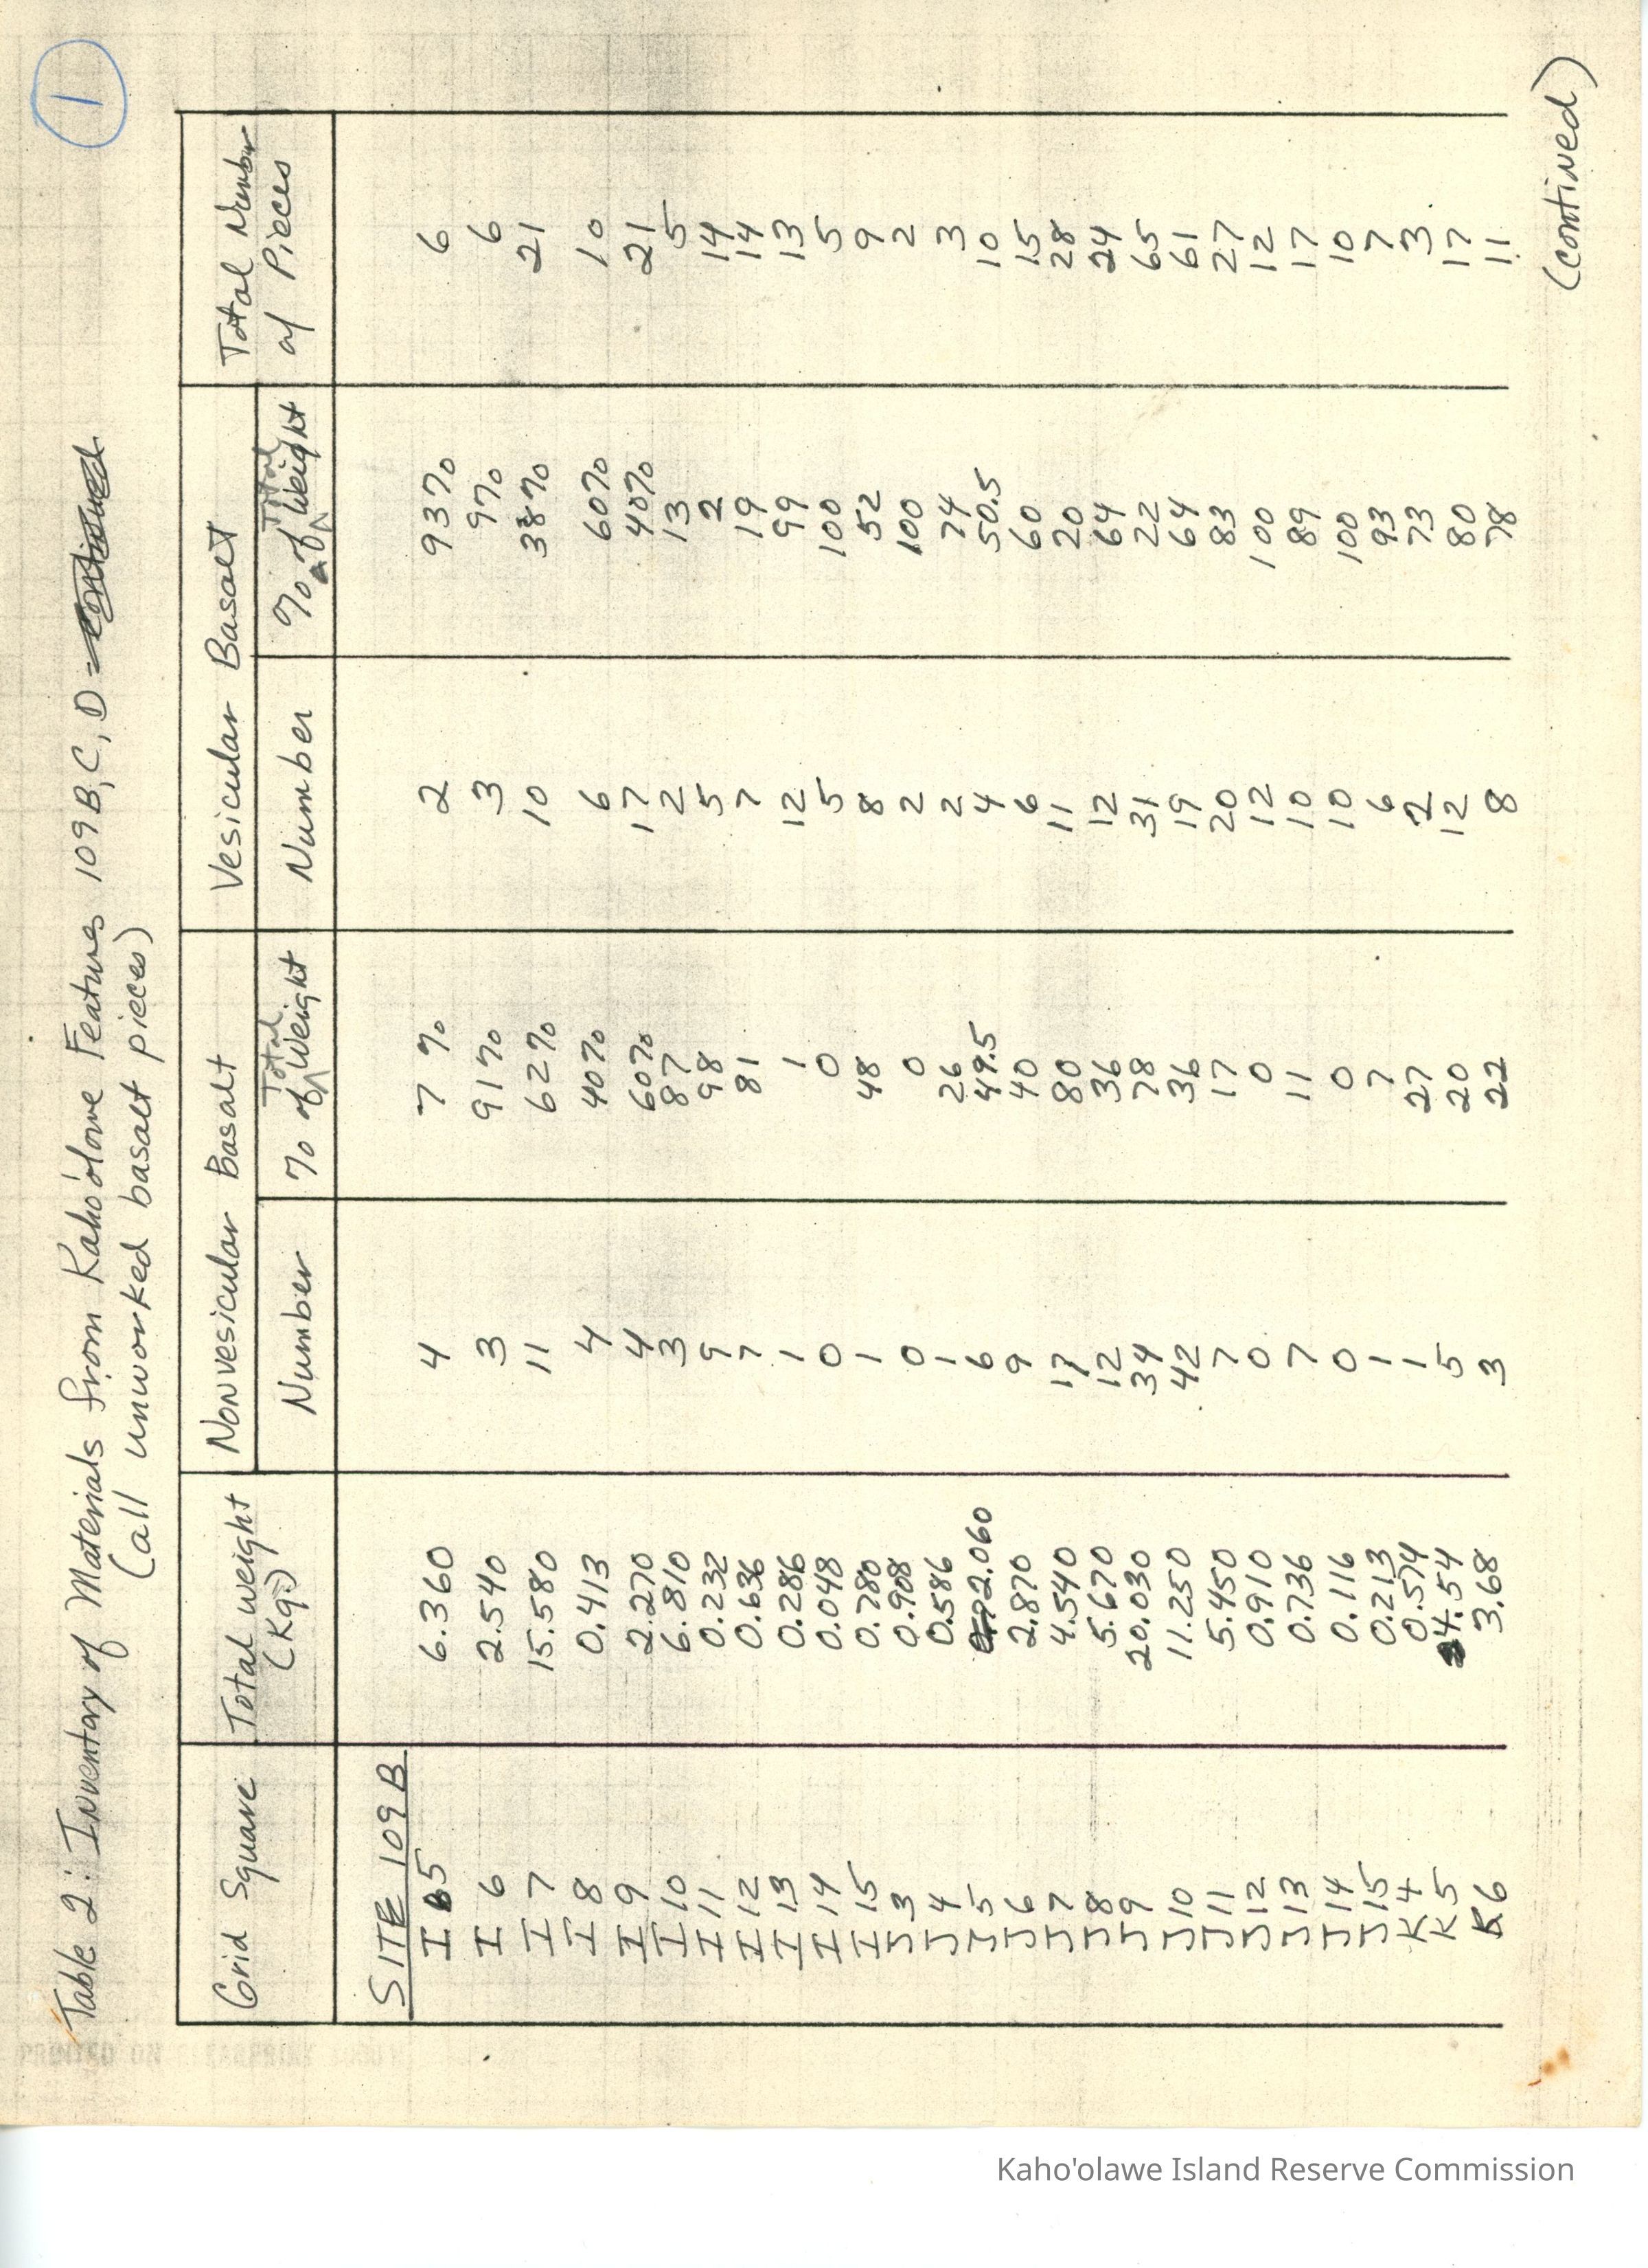 1
Table 2: Inventory of Materials from Kaho'olawe Features 109B,C,D
(all unworked basalt pieces)
Grid Square | Total weight (Kg.) | Nonvesicular Basalt | Vesicular Basalt | Total Number of Pieces
Number | % of Total Weight | Number | % of Total Weight
SITE 109B
I 5 6.360 4 7% 2 93% 6
I 6 2.540 3 91% 3 9% 6
I 7 15.580 11 62% 10 38% 21
I 8 0.413 4 40% 6 60% 10
I 9 2.270 4 60% 17 40% 21
I 10 6.810 3 87 2 13 5
I 11 0.232 9 98 5 2 14
I 12 0.636 7 81 7 19 14
I 13 0.286 1 1 12 99 13
I 14 0.048 0 0 5 100 5
I 15 0.780 1 48 8 52 9
J 3 0.908 0 0 2 100 2
J 4 0.586 1 26 2 74 3
J 5 2.060 6 49.5 4 50.5 10
J 6 2.870 9 40 6 60 15
J 7 4.540 17 80 11 20 28
J 8 5.670 12 36 12 64 24
J 9 20.030 34 78 31 22 65
J 10 11.250 42 36 19 64 61
J 11 5.450 7 17 20 83 27
J 12 0.910 0 0 12 100 12
J 13 0.736 7 11 10 89 17
J 14 0.116 0 0 10 100 10
J 15 0.213 1 7 6 93 7
K 4 0.574 1 27 2 73 3
K 5 4.54 5 20 12 80 17
K 6 3.68 3 22 8 78 11
(continued)
Kaho'olawe Island Reserve Commission